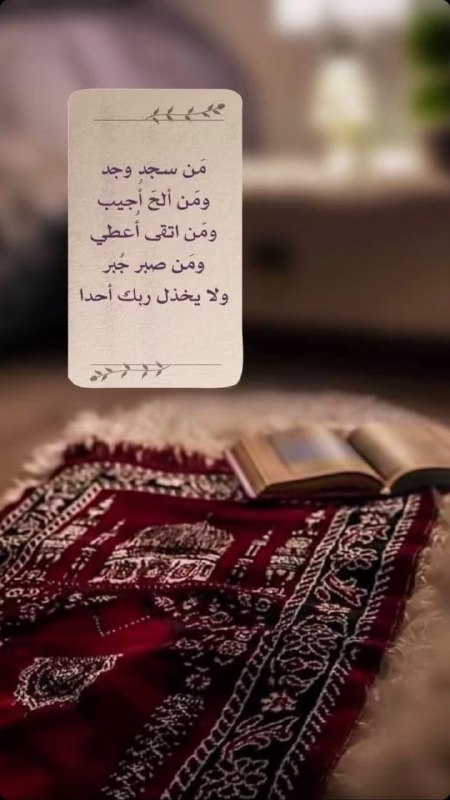 مَن سجد وجد
ومَن ألحَ أُجيب
ومَن اتقى أُعطي
ومَن صبر جُبر
ولا يخذل ربك أحدا